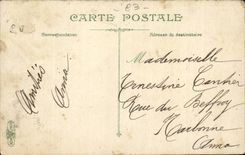 83
CARTE POSTALE
Correspondance
Adresse du destinataire
Amitiés
Mademoiselle
Ernestine
Rue du Beffroy
Narbonne